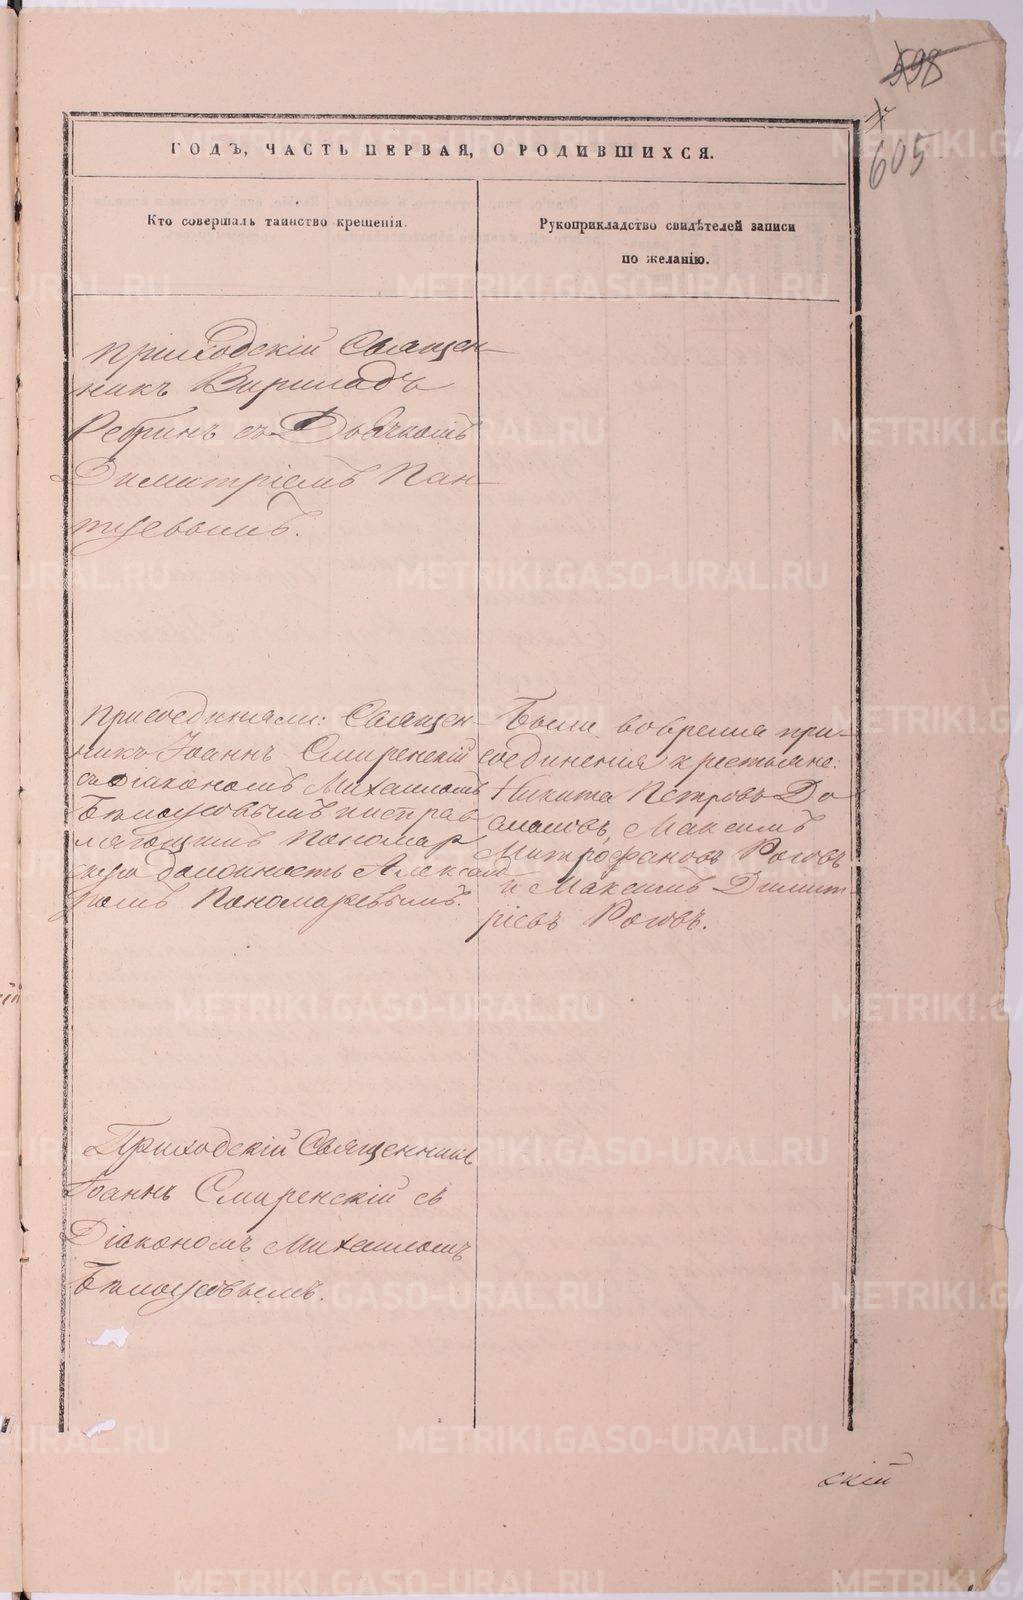 598
605
ГОДЪ, ЧАСТЬ ПЕРВАЯ, О РОДИВШИХСЯ.
Кто совершалъ таинство крещенія.
Рукоприкладство свидѣтелей записи
по желанію.
приходскій Священ-
никъ Вириладъ
Ребринъ съ Дьячкомъ
Димитріемъ Пан-
туевымъ.
присоединяли: Священ-
никъ Іоаннъ Смиренскій
съ діакономъ Михаиломъ
Бѣлоусовымъ и исправ
ляющимъ пономар
скую должность Александ
ромъ Пономаревымъ.
Были во время при-
соединенія крестьяне:
Никита Петровъ До
Максимъ
Митрофановъ Роговъ
и Максимъ Димит
ріевъ Роговъ.
Приходскій Священникъ
Іоаннъ Смиренскій съ
Діакономъ Михаиломъ
Бѣлоусовымъ.
скій
METRIKI.GASO-URAL.RU